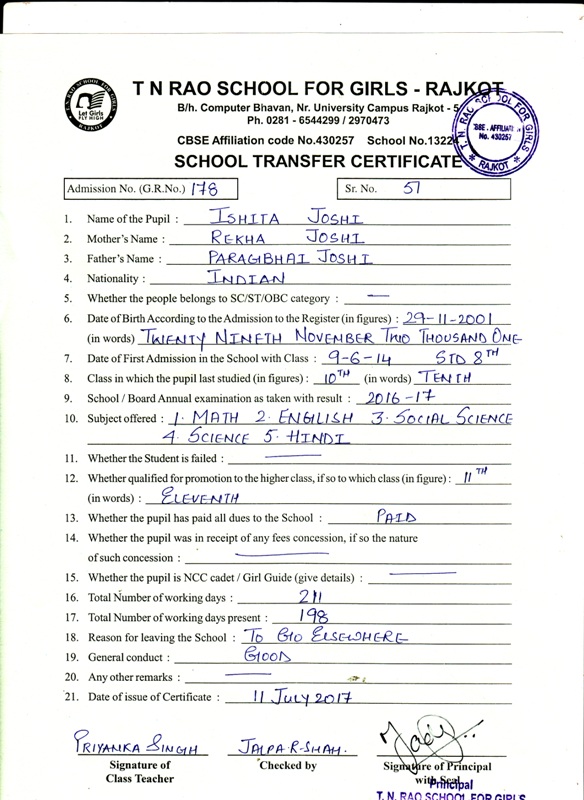 T. N. RAO SCHOOL FOR GIRLS
Let Girls
FLY HIGH
RAJKOT
T N RAO SCHOOL FOR GIRLS - RAJKOT
B/h. Computer Bhavan, Nr. University Campus Rajkot - 5
Ph. 0281 - 6544299 / 2970473
CBSE Affiliation code No.430257 School No.13224
SCHOOL TRANSFER CERTIFICATE
T. N. RAO SCHOOL FOR GIRLS
CBSE. AFFILIATE
No. 430257
* RAJKOT *
Admission No. (G.R.No.) 178 Sr. No. 51
1. Name of the Pupil : ISHITA JOSHI
2. Mother's Name : REKHA JOSHI
3. Father's Name : PARAGBHAI JOSHI
4. Nationality : INDIAN
5. Whether the people belongs to SC/ST/OBC category : —
6. Date of Birth According to the Admission to the Register (in figures) : 29-11-2001
(in words) TWENTY NINETH NOVEMBER TWO THOUSAND ONE
7. Date of First Admission in the School with Class : 9-6-14 STD 8TH
8. Class in which the pupil last studied (in figures) : 10TH (in words) TENTH
9. School / Board Annual examination as taken with result : 2016-17
10. Subject offered : 1. MATH 2. ENGLISH 3. SOCIAL SCIENCE
4. SCIENCE 5. HINDI
11. Whether the Student is failed : —
12. Whether qualified for promotion to the higher class, if so to which class (in figure) : 11TH
(in words) : ELEVENTH
13. Whether the pupil has paid all dues to the School : PAID
14. Whether the pupil was in receipt of any fees concession, if so the nature
of such concession : —
15. Whether the pupil is NCC cadet / Girl Guide (give details) : —
16. Total Number of working days : 211
17. Total Number of working days present : 198
18. Reason for leaving the School : TO GO ELSEWHERE
19. General conduct : GOOD
20. Any other remarks : —
21. Date of issue of Certificate : 11 JULY 2017
PRIYANKA SINGH JALPA·R·SHAH.
Signature of Checked by Signature of Principal
Class Teacher with Seal
Principal
T. N. RAO SCHOOL FOR GIRLS